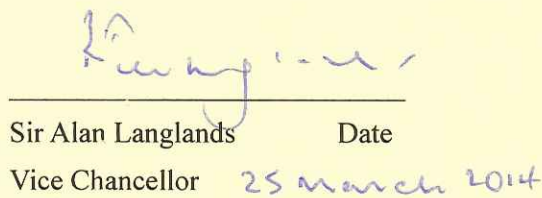 Sir Alan Langlands Date
Vice Chancellor 25 March 2014